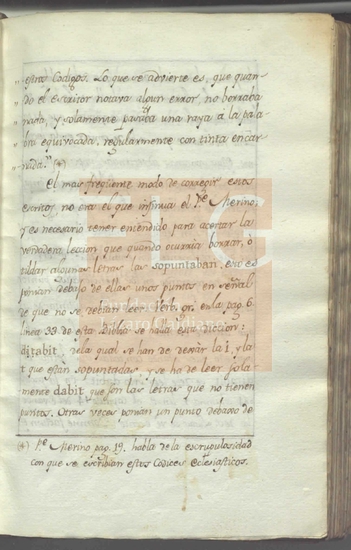 „ estos Codigos. Lo que se advierte es, que quan-
„ do el escritor notava algun error, no borraba
„ nada, y solamente passaba una raya a la pala-
„ bra equivocada, regularmente con tinta encar-
„ nada." (*)
El mas freqüente modo de corregir estos
escritos, no era el que insinua el Pe. Merino;
y es necesario tener entendido para acertar la
verdadera leccion que quando ocurria borrar, ò
tildar algunas letras las sopuntaban, esto es
ponian debajo de ellas unos puntos en señal
de que no se debian leer. Verbigr. en la pag. 6.
linea 33 de esta Biblia se halla esta diccion:
ditabit, de la qual se han de dexar la i, y la
t que estan sopuntadas, y se ha de leer sola
mente dabit que son las letras que no tienen
puntos. Otras veces ponian un punto debaxo de
(*) Pe. Merino pag. 19. habla de la escrupulosidad
con que se escribian estos Codices Eclesiasticos.
FLG